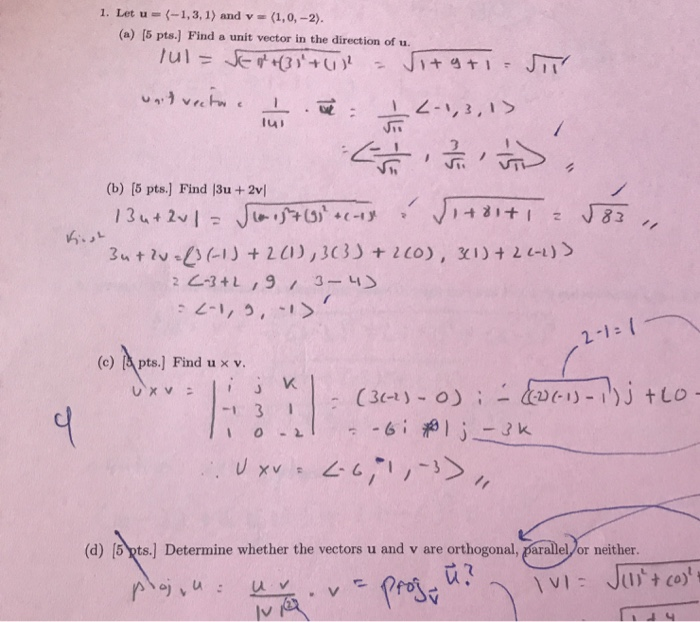 1. Let u = ⟨−1, 3, 1⟩ and v = ⟨1, 0, −2⟩.
(a) [5 pts.] Find a unit vector in the direction of u.
|u| = √(-1)²+(3)²+(1)² = √1+9+1 = √11
unit vector = 1/|u| · u = 1/√11 <-1, 3, 1>
= <-1/√11, 3/√11, 1/√11>
(b) [5 pts.] Find |3u + 2v|
|3u+2v| = √(-1)²+(9)²+(-1)² = √1+81+1 = √83
First
3u+2v = <3(-1)+2(1), 3(3)+2(0), 3(1)+2(-2)>
= <-3+2, 9, 3-4>
= <-1, 9, -1>
2-1=1
(c) [5 pts.] Find u × v.
U×V = | i j k = (3(-2)-0)i - ((-2)(-1)-1)j + (0-
-1 3 1 = -6i - 1j - 3k
1 0 -2 |
4
∴ U×V = <-6, -1, -3>
(d) [5 pts.] Determine whether the vectors u and v are orthogonal, parallel, or neither.
proj v u = u v / |v|² · v = proj v u? |v| = √(1)²+(0)²
√1+4